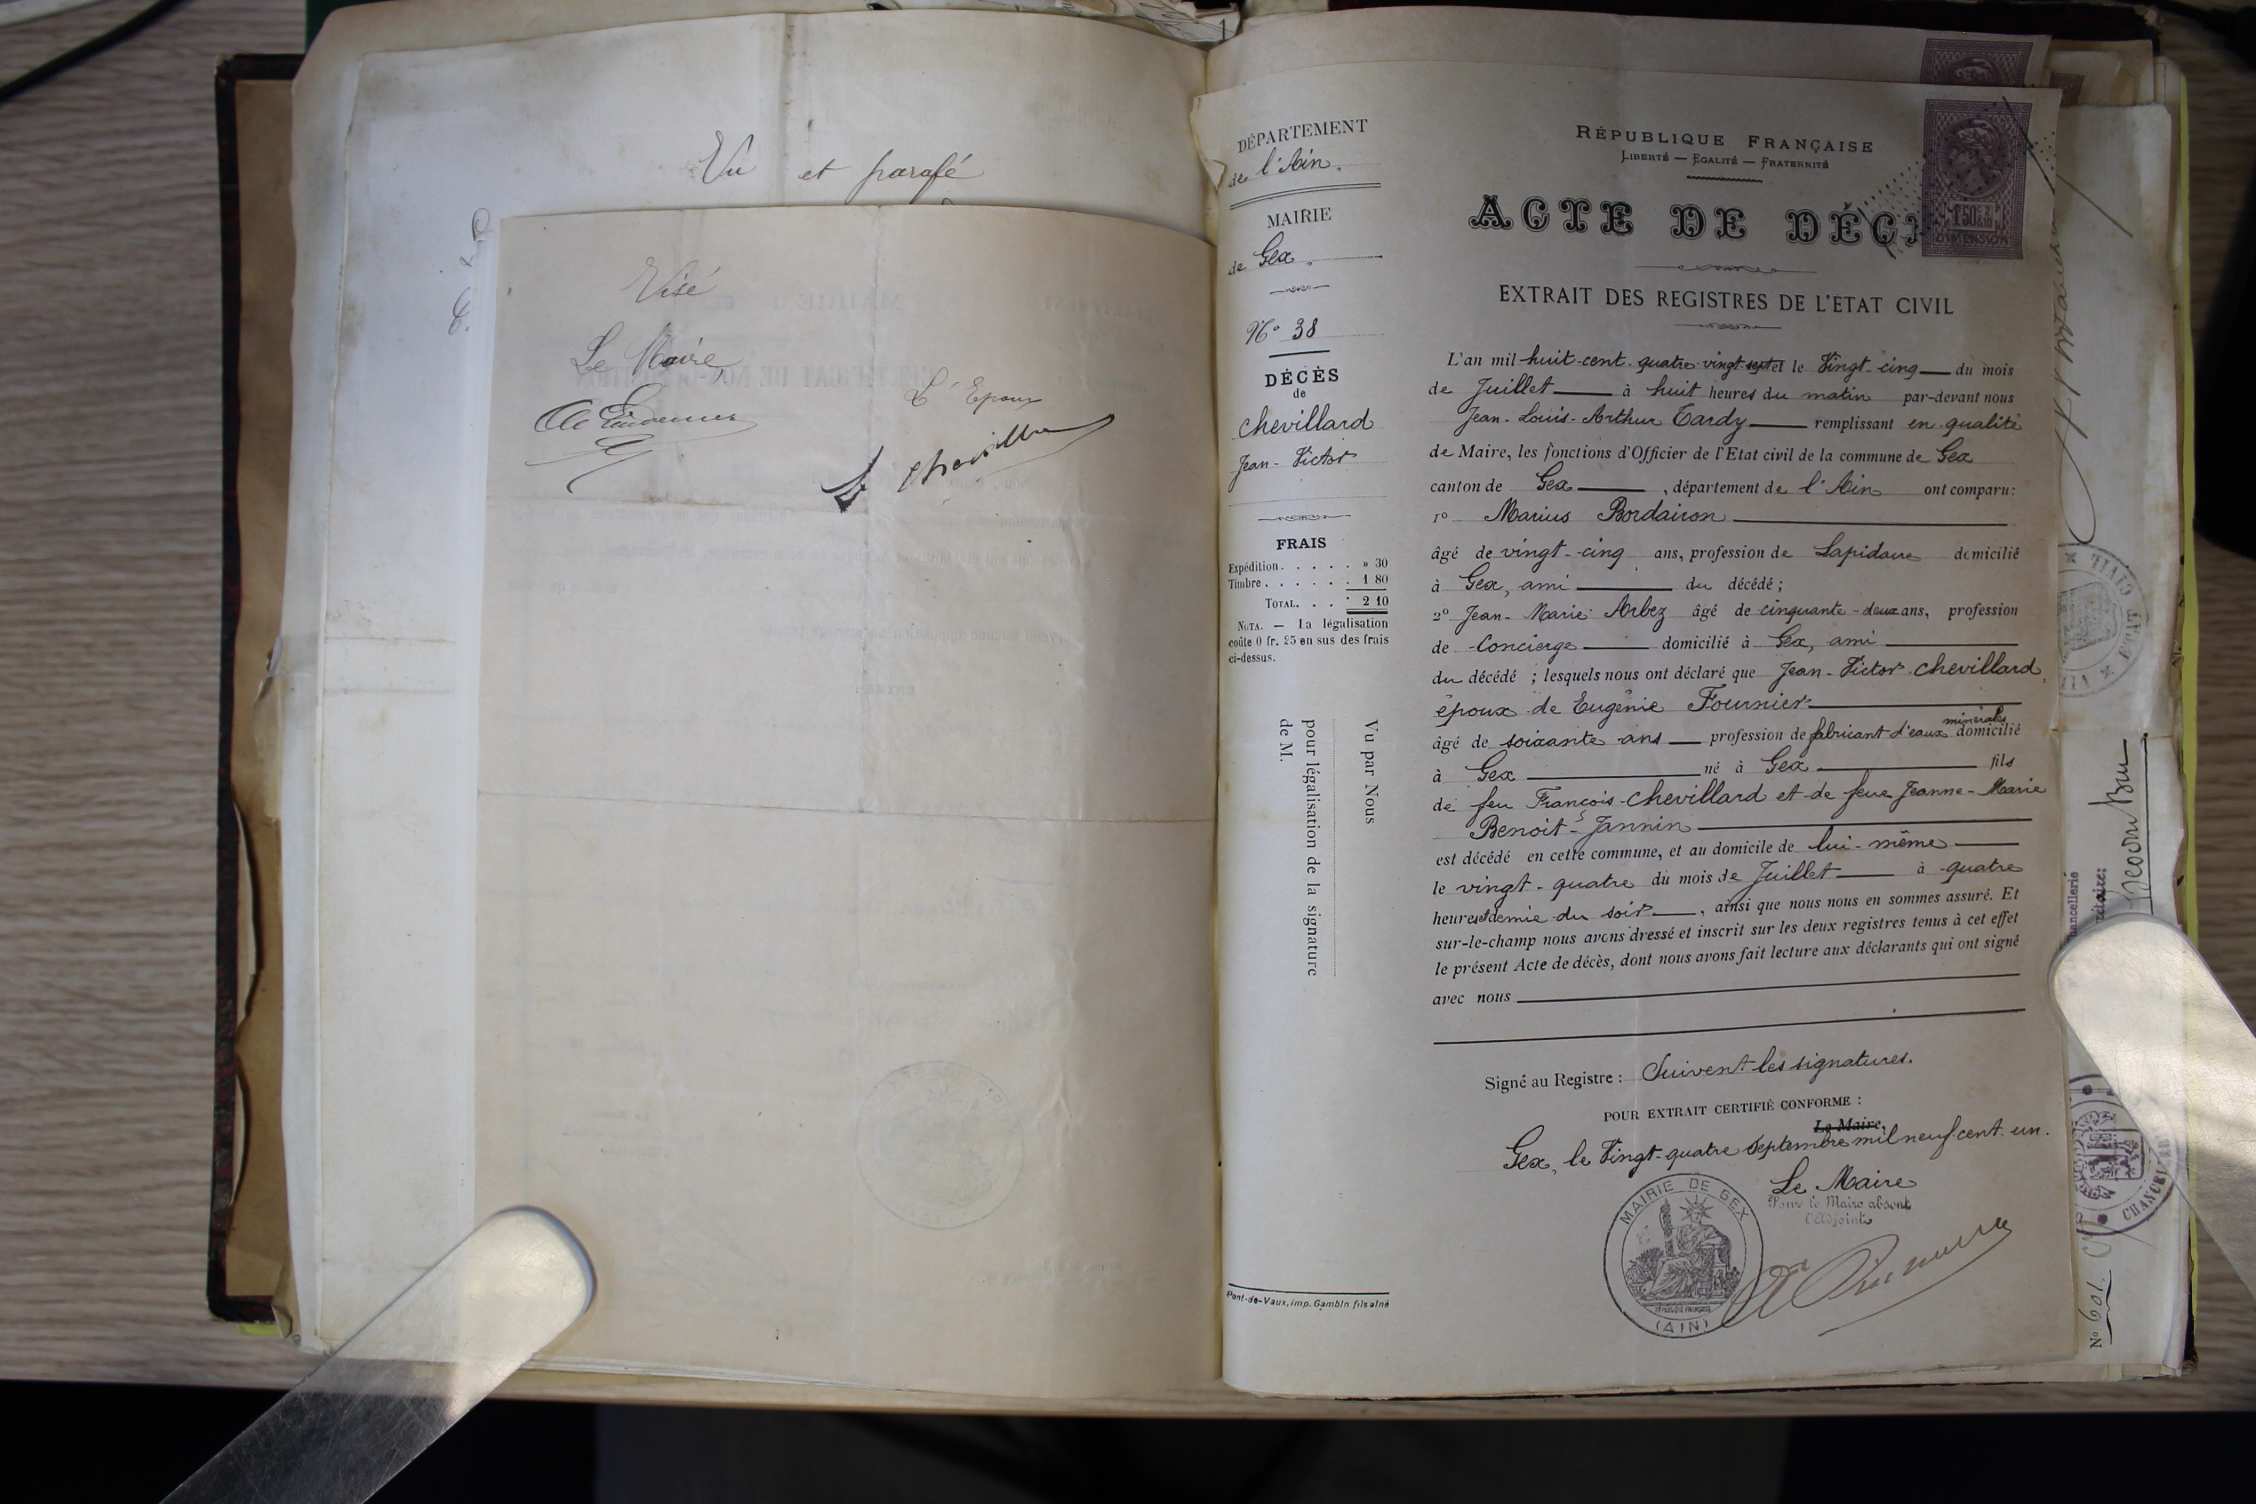 Vu et parafé
Visé
Le Maire,
L'Epoux
DÉPARTEMENT
de l'Ain.
MAIRIE
de Gex.
N° 38
DÉCÈS
de
Chevillard
Jean-Victor
FRAIS
Expédition. . . . . » 30
Timbre. . . . . . 1 80
TOTAL. . . 2 10
NOTA. — La légalisation
coûte 0 fr. 25 en sus des frais
ci-dessus.
Vu par Nous
pour légalisation de la signature
de M.
Pont-de-Vaux, imp. Gambin fils aîné
RÉPUBLIQUE FRANÇAISE
LIBERTÉ — EGALITÉ — FRATERNITÉ
ACTE DE DÉC
EXTRAIT DES REGISTRES DE L'ÉTAT CIVIL
L'an mil huit-cent-quatre-vingt-sept et le Vingt-cinq du mois
de Juillet à huit heures du matin par-devant nous
Jean-Louis-Arthur Tardy remplissant en qualité
de Maire, les fonctions d'Officier de l'Etat civil de la commune de Gex
canton de Gex, département de l'Ain ont comparu:
1° Marius Bordairon
âgé de vingt-cinq ans, profession de Lapidaire domicilié
à Gex, ami du décédé;
2° Jean-Marie Arbez âgé de cinquante-deux ans, profession
de Concierge domicilié à Gex, ami
du décédé; lesquels nous ont déclaré que Jean-Victor Chevillard,
époux de Eugénie Fournier
âgé de soixante ans profession de fabricant d'eaux minérales domicilié
à Gex né à Gex fils
de feu François Chevillard et de feue Jeanne-Marie
Benoit-Jannin
est décédé en cette commune, et au domicile de lui-même
le vingt-quatre du mois de Juillet à quatre
heures et demie du soir, ainsi que nous nous en sommes assuré. Et
sur-le-champ nous avons dressé et inscrit sur les deux registres tenus à cet effet
le présent Acte de décès, dont nous avons fait lecture aux déclarants qui ont signé
avec nous
Signé au Registre : Suivent les signatures.
POUR EXTRAIT CERTIFIÉ CONFORME :
Le Maire,
Gex, le Vingt-quatre Septembre mil neuf cent un.
Le Maire
Pour le Maire absent
l'Adjoint
MAIRIE DE GEX
(AIN)
1 50c
DIMENSION
ETAT CIVIL
N° 601